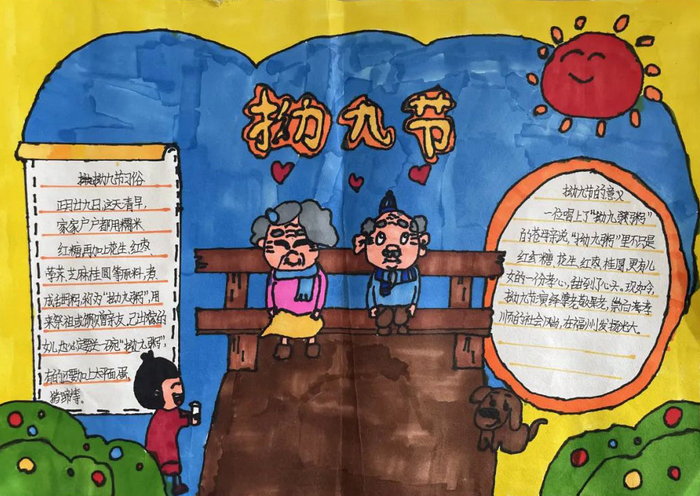 拗九节
拗九节习俗
正月廿九日这天清早，
家家户户都用糯米
红糖,再加上花生,红枣,
荸荠、芝麻桂圆等原料,煮
成甜粥,称为"拗九粥",用
来祭祖或馈赠亲友,已出嫁的
女儿也必定要送一碗"拗九粥",
有的还要加上太平面,蛋,
猪蹄等。
拗九节的意义
一位喝上了"拗九粥"
的老母亲说,"拗九粥"里不只是
红糖、花生、红枣、桂圆,更有儿
女的一份孝心,甜到了心头。现如今,
拗九节
川页的社会风尚,在福州发扬光大。